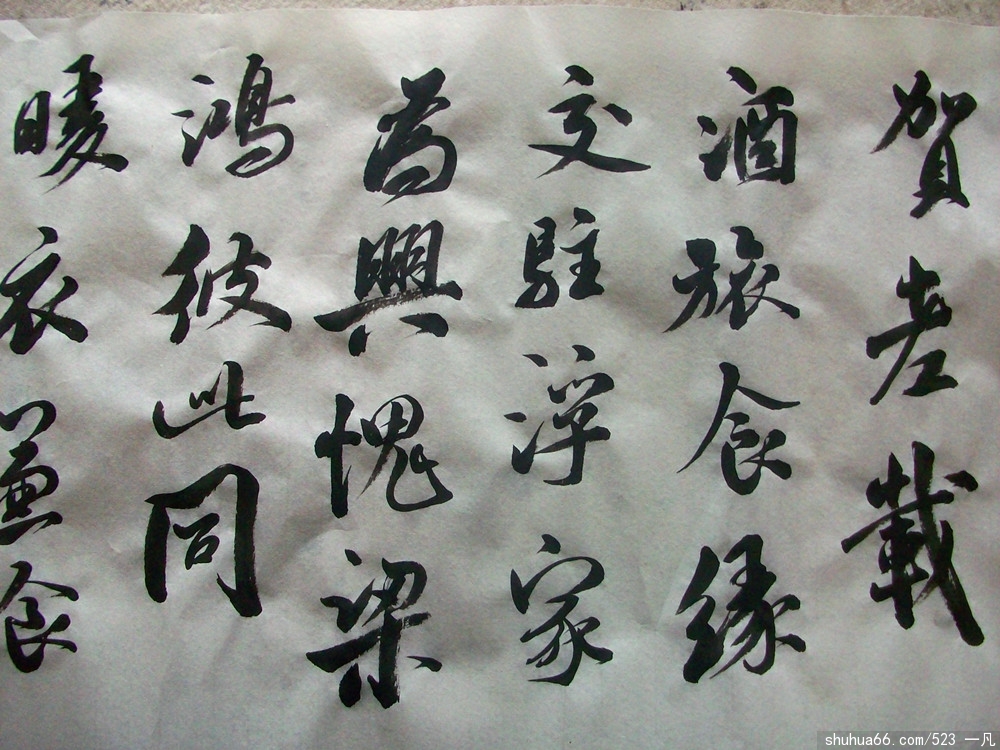 賀差載
酒旅食緣
交駐浮家
為興愧梁
鴻彼此同
暖衣兼食
shuhua66.com/523 一凡